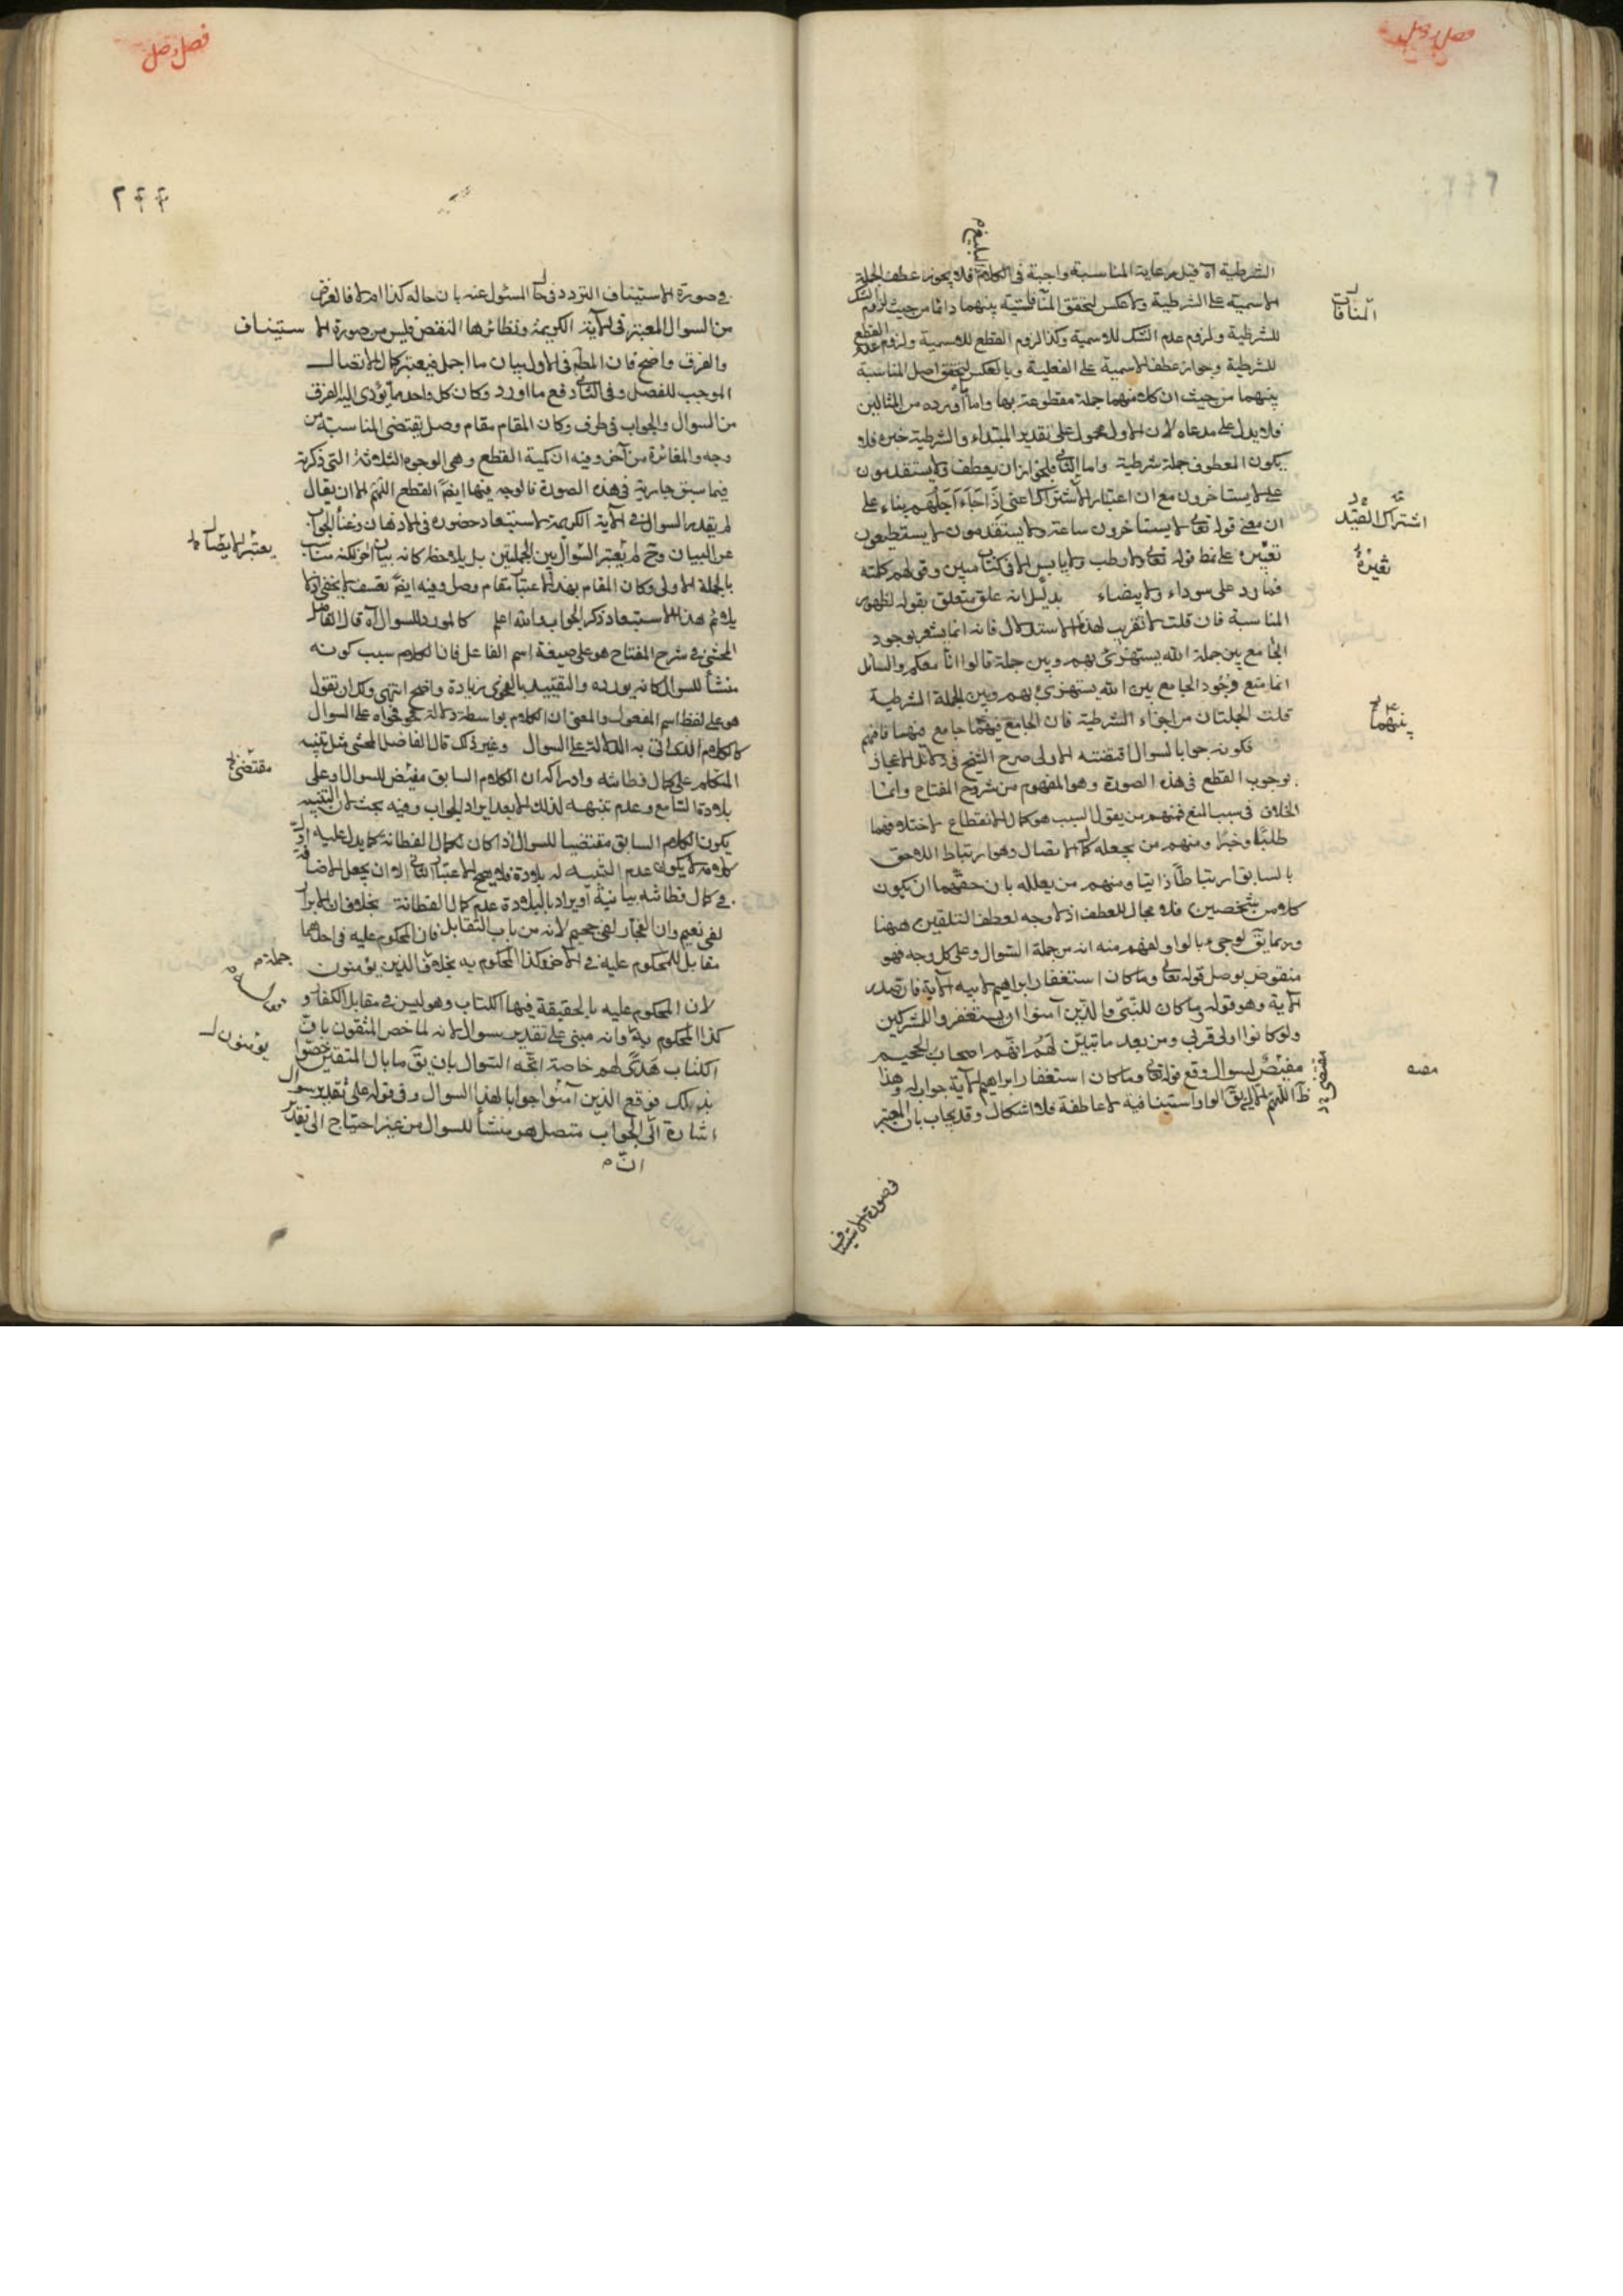 فصل وصل
الشرطية آه قيل رعاية المناسبة واجبة في الكلام البليغ فلا يجوز عطف الجملة
الاسمية على الشرطية ولا عكس لتحقق المنافات بينهما دائما من حيث لزوم الشك
للشرطية ولزوم عدم الشك للاسمية وكذا لزوم القطع للاسمية ولزوم عدم القطع
للشرطية وجواز عطف الاسمية على الفعلية وبالعكس لتحقق اصل المناسبة
بينهما من حيث ان كلا منهما جملة مقطوعة بها واما ما أورده من المثالين
فلا يدل على مدعاه لان الاول محمول على تقدير المبتداء والشرطية خبره فلا
يكون المعطوف جملة شرطية واما الثاني فلجواز ان يعطف ولا يستقدمون
على لا يستاخرون مع ان اعتبار الاشتراك اعنى إذا جاء أجلهم بناء على
ان معنى قوله تعالى لا يستاخرون ساعة ولا يستقدمون لا يستطيعون
تغييره على نمط قوله تعالى ولا رطب ولا يابس الا في كتاب مبين وقولهم كلمته
فما رد على سوداء ولا بيضاء بدليل انه علق متعلق بقوله لظهور
المناسبة فان قلت لا تقريب لهذا الاستدلال فانه انما يشعر بوجود
الجامع بين جملة الله يستهزئ بهم وبين جملة قالوا انا معكم والسائل
انما منع وجود الجامع بين الله يستهزئ بهم وبين الجملة الشرطية
قلت الجملتان من اجزاء الشرطية فان الجامع فيهما جامع فيهما فافهم
فكونه جوابا لسوال اقتضته الاولى صرح الشيخ في دلائل الاعجاز
بوجوب القطع في هذه الصورة وهو المفهوم من شروح المفتاح وانما
الخلاف في سبب المنع فمنهم من يقول السبب هو كمال الانقطاع لاختلافهما
طلبا وخبرا ومنهم من يجعله كمال الاتصال وهو ارتباط اللاحق
بالسابق ارتباطا ذاتيا ومنهم من يعلله بان حقهما ان يكون
كلا من شخصين فلا مجال للعطف اذ لا وجه لعطف التلقين ههنا
وربما يق لو جيء بالواو لفهم منه انه من جملة السوال وعلى كل وجه فهو
منقوض بوصل قوله تعالى وما كان استغفار ابراهيم لابيه الآية فان صدر
الآية وهو قوله ما كان للنبي والذين آمنوا ان يستغفروا للمشركين
ولو كانوا اولى قربى ومن بعد ما تبين لهم انهم اصحاب الجحيم
مقتض لسوال وقع قوله تعالى وما كان استغفار ابراهيم الآية جواب له وهذا
ظ اللهم الا ان يق الواو استينافية لا عاطفة فلا اشكال وقد يجاب بان المعتبر
في صورة الاستيناف
المنافات
اشتراك القيد
تغيره
بينهما
مقتضى
فصل وصل
٢٤٤
في صورة الاستيناف التردد في حال المسئول عنه بان حاله كذا ام لا فالغرض
من السوال المعتبر في الآية الكريمة ونظائرها النقض فليس من صورة الاستيناف
والفرق واضح فان المطم في الاول بيان ما اجمل فيعتبر كمال الاتصال
الموجب للفصل وفي الثاني دفع ما اورد وكان كل واحد مما يؤدى اليه الفرق
من السوال والجواب في طرف وكان المقام مقام وصل يقتضى المناسبة من
وجه والمغائرة من آخر وفيه ان كمية القطع وهى الوجوه الثلاثة التي ذكرت
فيما سبق جارية في هذه الصورة فالوجه فيها ايض القطع اللهم الا ان يقال
لم يقدر السوال في الآية الكريمة لاستبعاد حضوره في الاذهان وغنا الجواب
عن البيان وح لم يعتبر السوال بين الجملتين بل يلاحظ كانه بيان آخر لكنه مناسب
بالجملة الاولى وكان المقام بهذا الاعتبار مقام وصل وفيه ايض تعسف لا يخفى اذ لا
يلائم هذا الاستبعاد ذكر الجواب والله اعلم كالمورد للسوال آه قال الفاضل
المحشى في شرح المفتاح هو على صيغة اسم الفاعل فان الكلام سبب كونه
منشأ للسوال كانه يورده والتقييد بالفحوى زيادة واضح انتهى ولك ان تقول
هو على لفظ اسم المفعول والمعنى ان الكلام بواسطة دلالة فحواه على السوال
كالكلام الذي اتى به الدلالة على السوال وغير ذلك قال الفاضل المحشى مثل تنبيه
المتكلم على كمال فطانته وادراكه ان الكلام السابق مقتض للسوال او على
بلادة السامع وعدم تنبهه لذلك الا بعد ايراد الجواب وفيه بحث لان التنبيه
يكون الكلام السابق مقتضيا للسوال اذا كان لكمال الفطانة كما يدل عليه اول
كلامه لا يكون عدم التنبيه له بلادة فلا يصح الاعتبار الثاني الا ان يجعل الاضافة
في كمال فطانته بيانية او يراد بالبلادة عدم كمال الفطانة بخلاف ان الابرار
لفى نعيم وان الفجار لفى جحيم لانه من باب التقابل فان المحكوم عليه في احدهما
مقابل للمحكوم عليه في الآخر وكذا المحكوم به بخلاف الذين يؤمنون
لان المحكوم عليه بالحقيقة فيها الكتاب وهو ليس في مقابل الكفار و
كذا المحكوم به وانه مبنى على تقدير سوال لانه لما خص المتقون بان
الكتاب هدى لهم خاصة اتجه السوال بان يق ما بال المتقين خصوا
بذلك فوقع الذين آمنوا جوابا لهذا السوال وفى قوله على تقدير سوال
اشارة الى الجواب متصل هو منشأ للسوال من غير احتياج الى تقدير
ان
يعتبر الايضا
مقتضى
جملة
يؤمنون